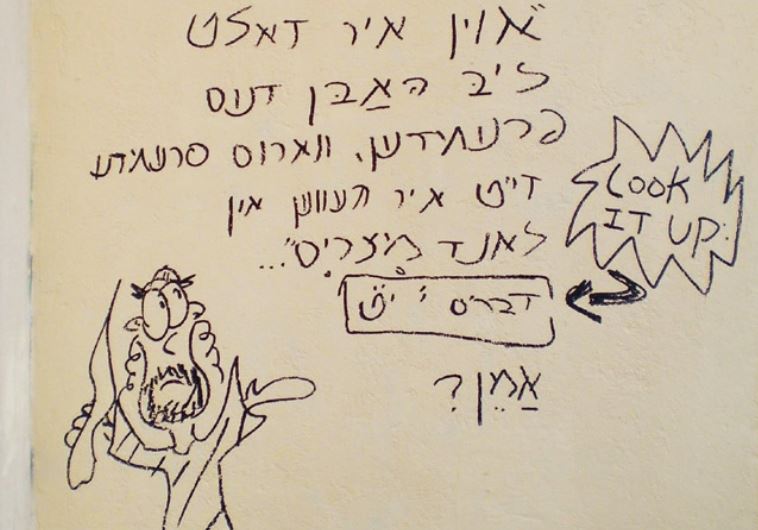 "און איר זאלט
ליב האַבן דעם
פרעמידען, ווארום פרעמדע
זייט איר געווען אין
לאנד מִיצריִם"...
דברים י״ י״ט
אַמֵן?
LOOK
IT UP.